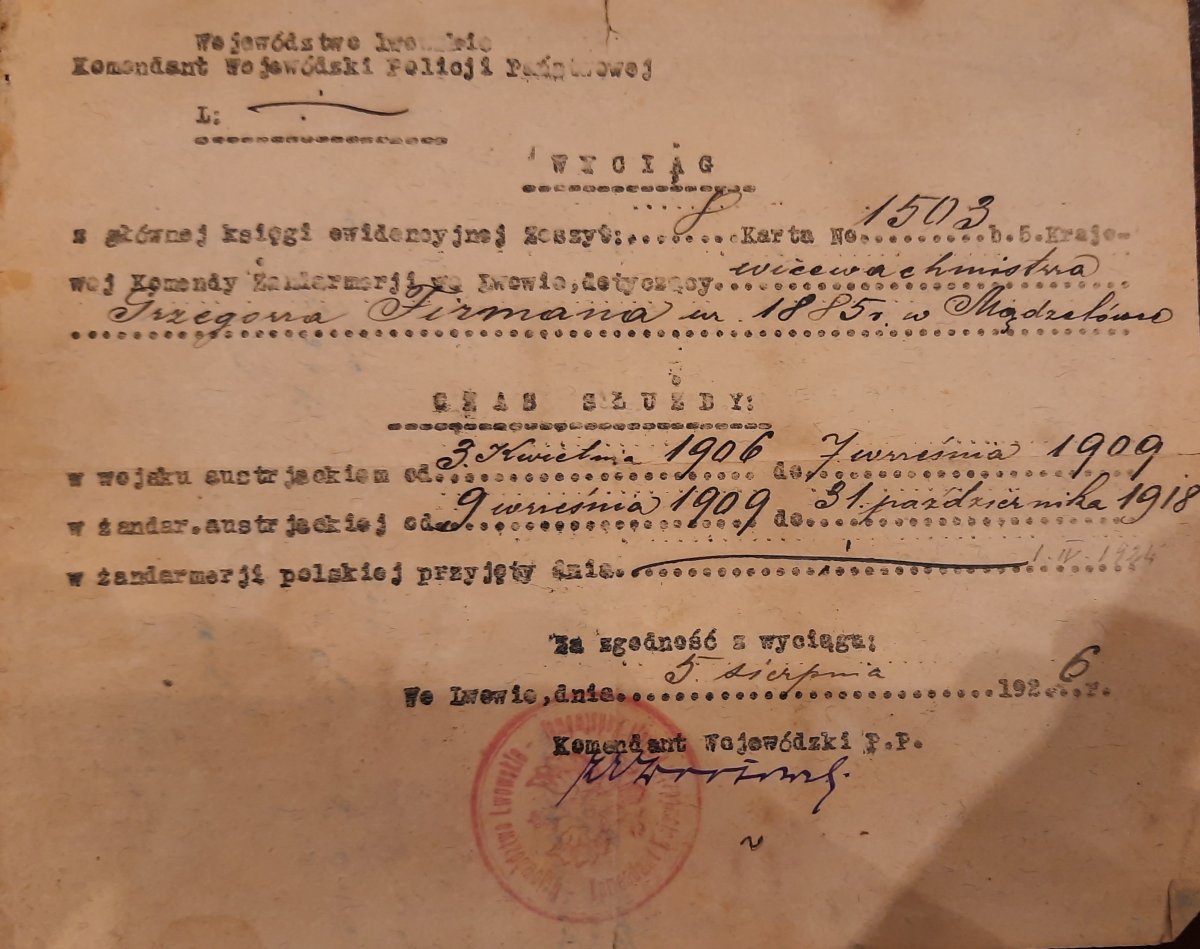 Województwo Lwowskie
Komendant Wojewódzki Policji Państwowej
L:
WYCIĄG
z głównej księgi ewidencyjnej Zeszyt: 8 Karta No 1503 b.5.Krajo-
wej Komendy Żandarmerji we Lwowie, dotyczący wicewachmistrza
Grzegorza Firmana ur. 1885 r. w Mądzelówce
CZAS SŁUŻBY:
w wojsku austrjackiem od 3. Kwietnia 1906 do 7 września 1909
w żandar.austrjackiej od 9 września 1909 do 31. października 1918
w żandarmerji polskiej przyjęty dnia 1. IV. 1924
Za zgodność z wyciągu:
We Lwowie, dnia 5. sierpnia 1926 r.
Komendant Wojewódzki P.P.
Województwo Lwowskie